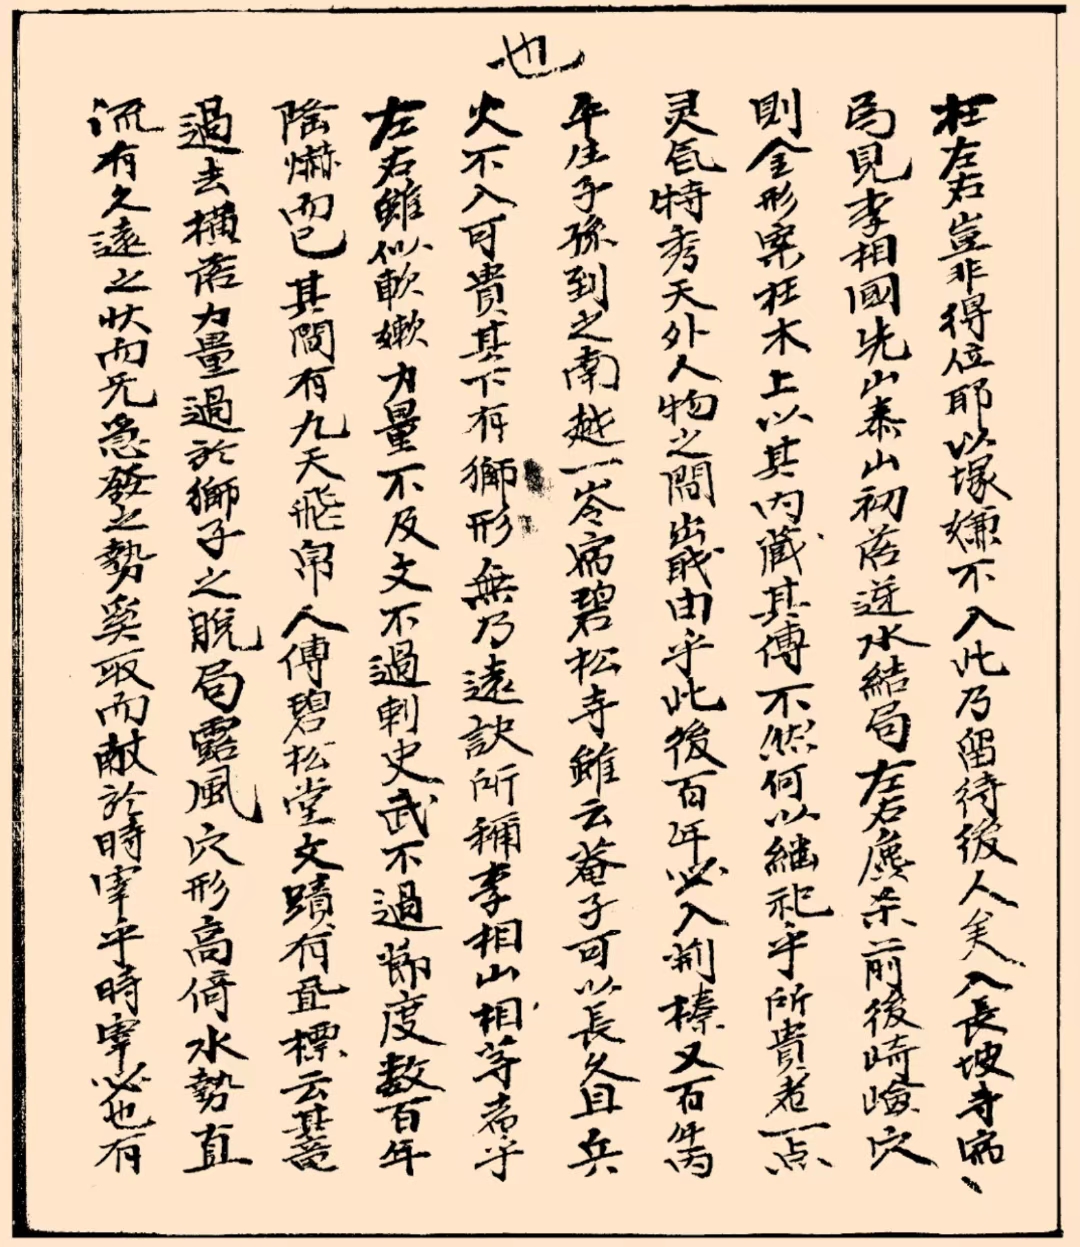 也
枉左右豈非得位耶以塚嫌不入此乃留待後人矣入長坡寺宿、
局見李相國先山泰山初落逆水結局左右麁杀前後崎嶮穴
則金形案枉木上以其内藏其傳不然何以継祀乎所貴者一点
灵气特秀天外人物之間出職由乎此後百年必入荊榛又百年丙
平生子孫到之南越一岺宿碧松寺雖云菴子可以長久且兵
火不入可貴其下有獅形無乃遠訣所稱李相山相等者乎
左右雖似軟嫩力量不及文不過刺史武不過節度数百年
陰嚇而已其間有九天飛帛人傳碧松堂文蹟有瓦標云其竜
過去橫落力量過於獅子之脫局露風穴形高倚水勢直
流有久遠之状而旡急發之勢奚取而献於時宰乎時宰必也有